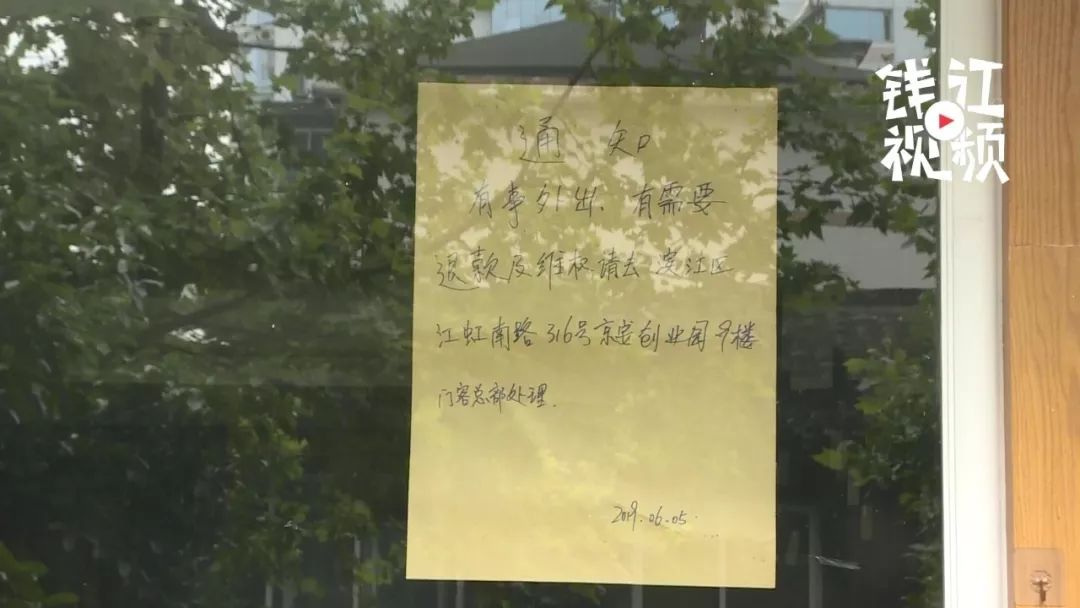 钱江
视频
通 知
有事外出、有需要
退款及维权请去滨江区
江虹南路316号京安创业园9楼
门客总部处理.
2019.06.05.